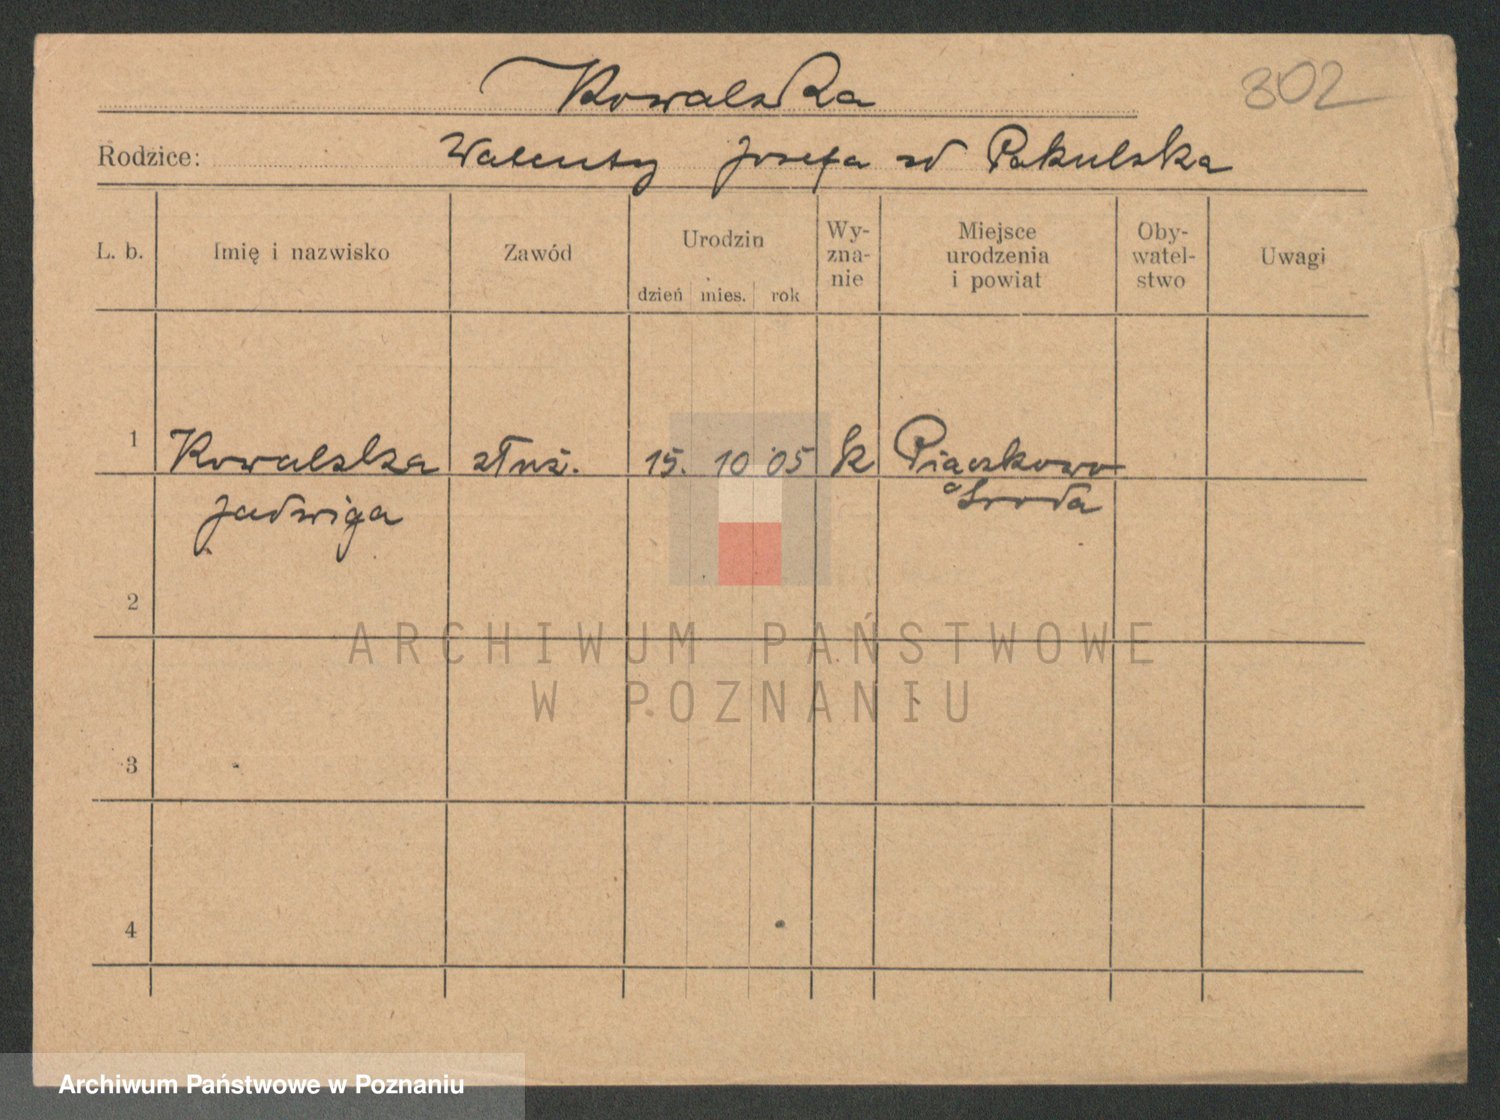 Kowalska
302
Rodzice: Walenty Josefa zd Pakulska
L. b.
Imię i nazwisko
Zawód
Urodzin
dzień mies. rok
Wy-
zna-
nie
Miejsce
urodzenia
i powiat
Oby-
watel-
stwo
Uwagi
1 Kowalska służ. 15. 10 05 k Piączkowo
Jadwiga Środa
2
ARCHIWUM PAŃSTWOWE
W POZNANIU
3
4
Archiwum Państwowe w Poznaniu